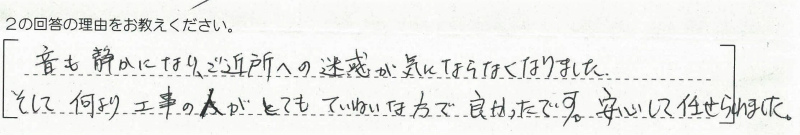 2の回答の理由をお教えください。
音も静かになり、ご近所への迷惑が気にならなくなりました。
そして何より工事の人がとてもていねいな方で良かったです。安心して任せられました。